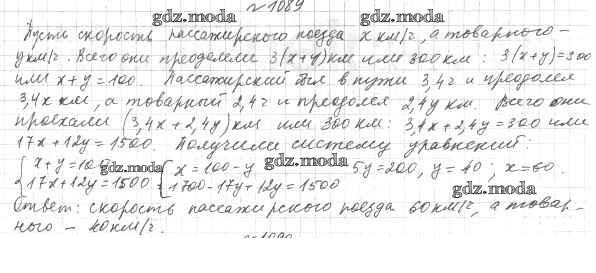 № 1089
gdz.moda gdz.moda
Пусть скорость пассажирского поезда x км/ч, а товарного –
y км/ч. Всего они преодолели 3(x+y) км или 300 км: 3(x+y)=300
или x+y=100. Пассажирский был в пути 3,4 ч и преодолел
gdz.moda
3,4x км, а товарный 2,4 ч и преодолел 2,4y км. Всего они
проехали (3,4x+2,4y) км или 300 км: 3,4x+2,4y=300 или
17x+12y=1500. Получили систему уравнений:
gdz.moda gdz.moda
{ x+y=100 { x=100-y 5y=200, y=40; x=60.
17x+12y=1500 1700-17y+12y=1500
gdz.moda
Ответ: скорость пассажирского поезда 60 км/ч, а товар-
ного – 40 км/ч.
gdz.moda
№ 1090